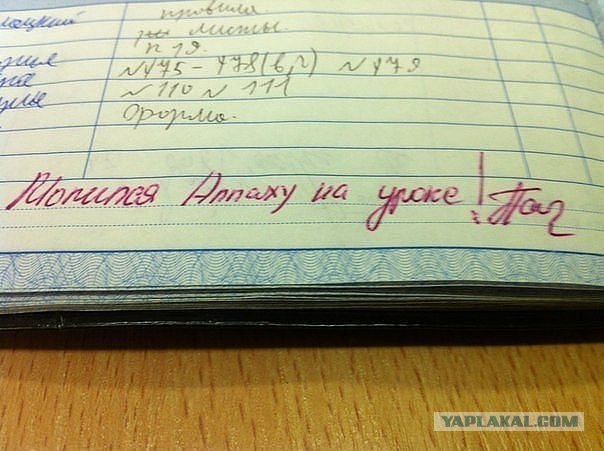 правила.
листы.
п 19.
№475-478(в,г) №479
№110 № 111
Форма.
Молился Аллаху на уроке!
YAPLAKAL.COM